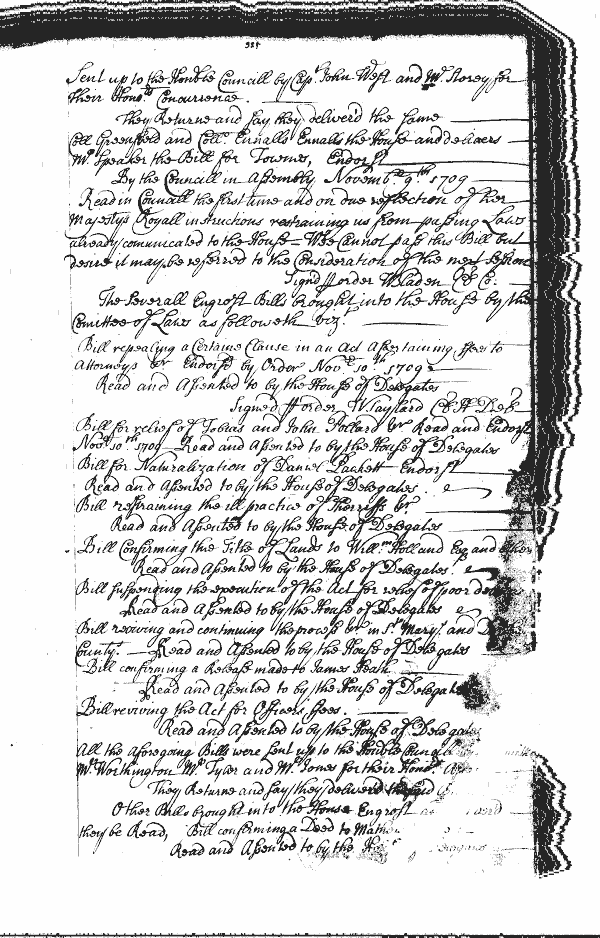 Sent up to the Honble Councill by Capt. John West and Mr. Storey for
their Honrs. Concurrence.
They Returne and say they deliverd the same
Coll Greenfield and Coll. Ennalls Enalls the House and delivers
Mr. Speaker the Bill for Townes, Endorst
By the Councill in Assembly Novembr. 9th 1709
Read in Councill the first time and on due reflection of her
Majestys Royall instructions restraining us from passing Laws
already comunicated to the House = Wee Cannot pass this Bill but
desire it may be referred to the Consideration of the next Sessions
Signd p order W Bladen Cl Co.
The Severall Engrost Bills brought into the House by the
Comittee of Laws as followeth vizt.
Bill repealing a Certaine Clause in an Act Assertaining ffees to
Attorneys &c Endorsd by Order Novr. 10th. 1709
Read and Assented to by the House of Delegates
Signed p order, W Taylard Cl H Del
Bill for relief of Tobias and John Pollard &c Read and Endorst
Novr. 10th. 1709 Read and Assented to by the House of Delegates
Bill for Naturalization of Daniel Endorst
Read and Assented to by the House of Delegates.
Bill restraining the ill practice of Sherriffs &c
Read and Assented to by the House of Delegates
Bill Confirming the Title of Lands to Willm. Holland Esq and others
Read and Assented to by the House of Delegates.
Bill suspending the execution of the Act for relief of poor
Read and Assented to by the House of Delegates
Bill reviving and continuing the process &c in St. Marys. and
County. Read and Assented to by the House of Delegates
Bill confirming a Release made to James Heath
Read and Assented to by the House of Delegates
Bill reviving the Act for Officers ffees.
Read and Assented to by the House of Delegates
All the aforegoing Bills were Sent up to the Honble
Mr. Worthington Mr. Tyler and Mr. Jones for their Honrs.
They Returne and say they delivered
Other Bills brought into the House Engrost as
they be Read, Bill confirming a Deed to
Read and Assented to by the